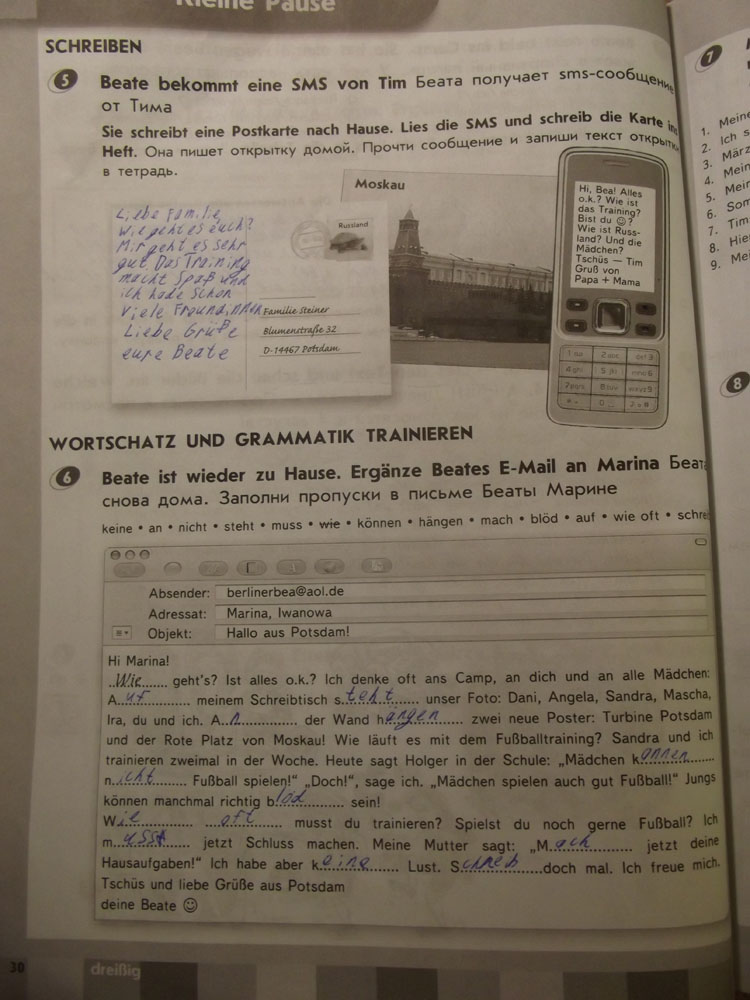 Kleine Pause
SCHREIBEN
5 Beate bekommt eine SMS von Tim Беата получает sms-сообщение
от Тима
Sie schreibt eine Postkarte nach Hause. Lies die SMS und schreib die Karte ins
Heft. Она пишет открытку домой. Прочти сообщение и запиши текст открытки
в тетрадь.
Moskau
Russland
Liebe Familie,
wie geht es euch?
Mir geht es sehr
gut. Das Training
macht Spaß und
ich habe schon
viele Freundinnen
Liebe Grüße
eure Beate
Familie Steiner
Blumenstraße 32
D-14467 Potsdam
Hi, Bea! Alles
o.k.? Wie ist
das Training?
Bist du ☺?
Wie ist Russ-
land? Und die
Mädchen?
Tschüs — Tim
Gruß von
Papa + Mama
WORTSCHATZ UND GRAMMATIK TRAINIEREN
6 Beate ist wieder zu Hause. Ergänze Beates E-Mail an Marina Беата
снова дома. Заполни пропуски в письме Беаты Марине
keine • an • nicht • steht • muss • wie • können • hängen • mach • blöd • auf • wie oft • schre
Absender: berlinerbea@aol.de
Adressat: Marina, Iwanowa
Objekt: Hallo aus Potsdam!
Hi Marina!
Wie geht's? Ist alles o.k.? Ich denke oft ans Camp, an dich und an alle Mädchen:
Auf meinem Schreibtisch steht unser Foto: Dani, Angela, Sandra, Mascha,
Ira, du und ich. An der Wand hangen zwei neue Poster: Turbine Potsdam
und der Rote Platz von Moskau! Wie läuft es mit dem Fußballtraining? Sandra und ich
trainieren zweimal in der Woche. Heute sagt Holger in der Schule: „Mädchen kannen
nicht Fußball spielen!“ „Doch!“, sage ich. „Mädchen spielen auch gut Fußball!“ Jungs
können manchmal richtig blöd sein!
Wie oft musst du trainieren? Spielst du noch gerne Fußball? Ich
musst jetzt Schluss machen. Meine Mutter sagt: „Mach jetzt deine
Hausaufgaben!“ Ich habe aber keine Lust. Schreib doch mal. Ich freue mich.
Tschüs und liebe Grüße aus Potsdam
deine Beate ☺
30 dreißig
7
1. Meine
2. Ich s
3. März
4. Mein
5. Mein
6. Som
7. Tim
8. Hie
9. Me
8